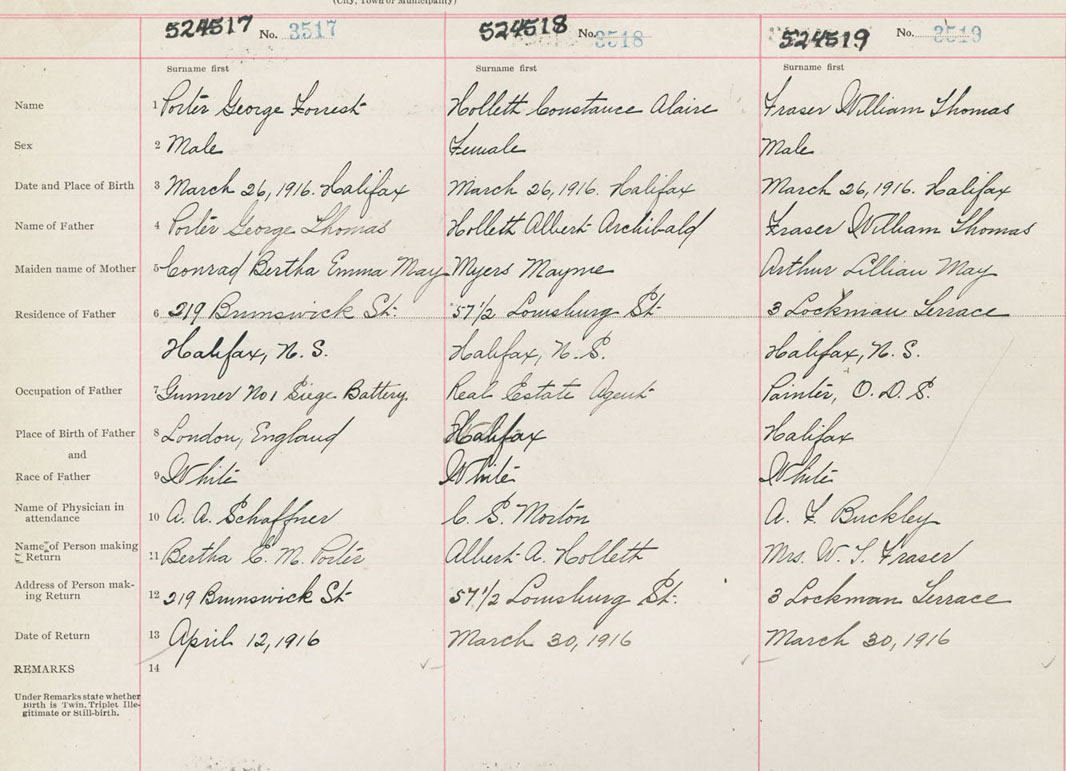 (City, Town or Municipality)
524517 No. 3517 524518 No. 3518 524519 No. 3519
Surname first Surname first Surname first
Name 1 Porter George Forrest Hollett Constance Alaire Fraser William Thomas
Sex 2 Male Female Male
Date and Place of Birth 3 March 26, 1916. Halifax March 26, 1916. Halifax March 26, 1916. Halifax
Name of Father 4 Porter George Thomas Hollett Albert Archibald Fraser William Thomas
Maiden name of Mother 5 Conrad Bertha Emma May Myers Mayme Arthur Lillian May
Residence of Father 6 219 Brunswick St. 57 1/2 Louisburg St. 3 Lockman Terrace
Halifax, N. S. Halifax, N. S. Halifax, N. S.
Occupation of Father 7 Gunner No 1 Siege Battery. Real Estate Agent Painter, O. D. S.
Place of Birth of Father 8 London, England Halifax Halifax
and
Race of Father 9 White White White
Name of Physician in
attendance 10 A. A. Schaffner C. S. Morton A. F. Buckley
Name of Person making
Return 11 Bertha E. M. Porter Albert A. Hollett Mrs. W. T. Fraser
Address of Person mak-
ing Return 12 219 Brunswick St. 57 1/2 Louisburg St. 3 Lockman Terrace
Date of Return 13 April 12, 1916 March 30, 1916 March 30, 1916
REMARKS 14
Under Remarks state whether
Birth is Twin, Triplet Ille-
gitimate or Still-birth.